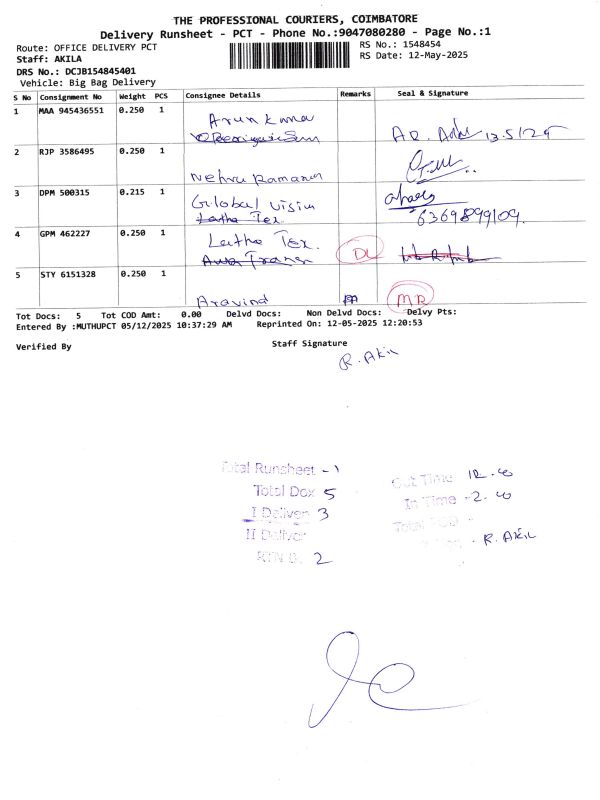 THE PROFESSIONAL COURIERS, COIMBATORE
Delivery Runsheet - PCT - Phone No.:9047080280 - Page No.:1
Route: OFFICE DELIVERY PCT
RS No.: 1548454
Staff: AKILA
RS Date: 12-May-2025
DRS No.: DCJB154845401
Vehicle: Big Bag Delivery
S No Consignment No Weight PCS Consignee Details Remarks Seal & Signature
1 MAA 945436551 0.250 1 Arun Kumar
13.5/25
2 RJP 3586495 0.250 1
Nehru Ramanan
3 DPM 500315 0.215 1 Global Vision
Latha Tex.
6369899109.
4 GPM 462227 0.250 1 Latha Tex. DL
5 STY 6151328 0.250 1
Aravind MR
Tot Docs: 5 Tot COD Amt: 0.00 Delvd Docs: Non Delvd Docs: Delvy Pts:
Entered By :MUTHUPCT 05/12/2025 10:37:29 AM Reprinted On: 12-05-2025 12:20:53
Verified By Staff Signature
R. Akil
Total Runsheet - 1
Out Time 12.40
Total Dox 5
In Time -2.40
I Deliver 3
Total POD -
II Deliver
R. Akil
2